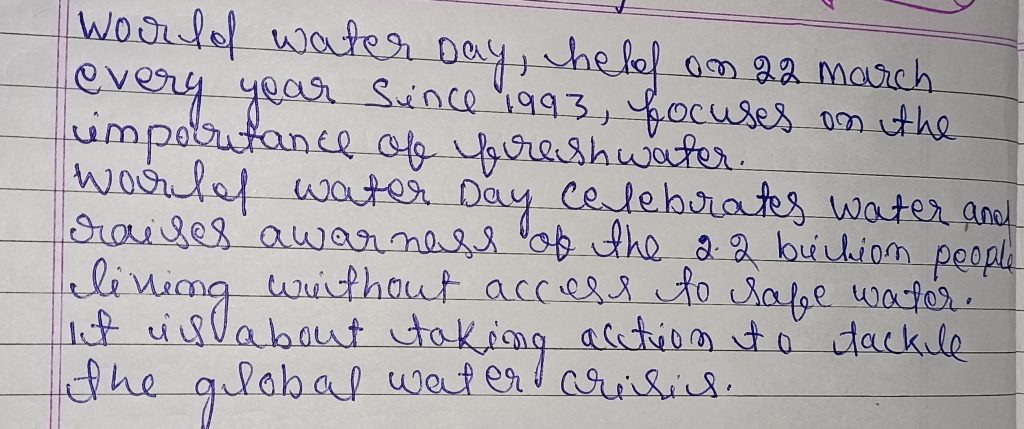 World water Day, held on 22 March
every year since 1993, focuses on the
importance of freshwater.
World water Day celebrates water and
raises awarness of the 2.2 billion people
living without access to safe water.
It is about taking action to tackle
the global water crisis.